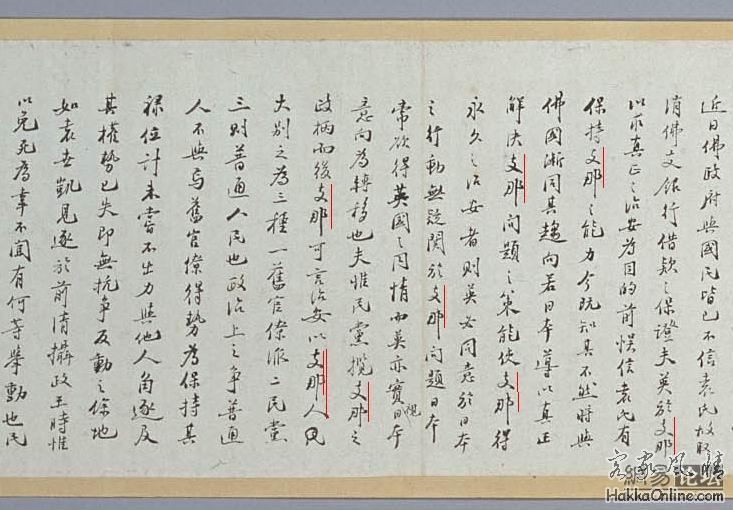 近日佛政府與國民皆已不信袁氏故取
消佛支銀行借欵之保證夫英於支那
以求真正之治安為目的前誤信袁氏有
保持支那之能力今既知其不然時與
佛國漸同其趨向若日本導以真正
解決支那問題之策能使支那得
永久之治安者則英必同意於日本
之行動無疑關於支那問題日本
常欲得英國之同情而英亦實視日本
意向為轉移也夫惟民黨攬支那之
政柄而後支那可言治安以支那人民
大別之為三種一舊官僚派二民黨
三則普通人民也政治上之爭普通
人不與焉舊官僚得勢為保持其
祿位計未嘗不出力與他人角逐及
其權勢已失即無抗爭反動之餘地
如袁世凱見逐於前清攝政王時惟
以免死為幸不聞有何等舉動也民
客家風情
網易论坛
HakkaOnline.com